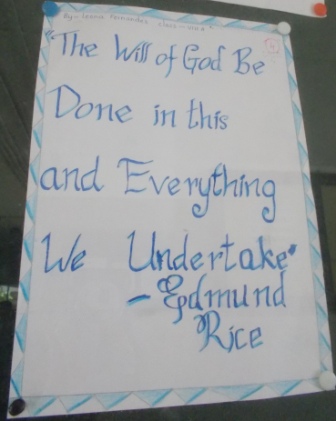 By- Fernandes class-
"The Will of God Be
Done in this
and Everything
We Undertake"
- Edmund
Rice